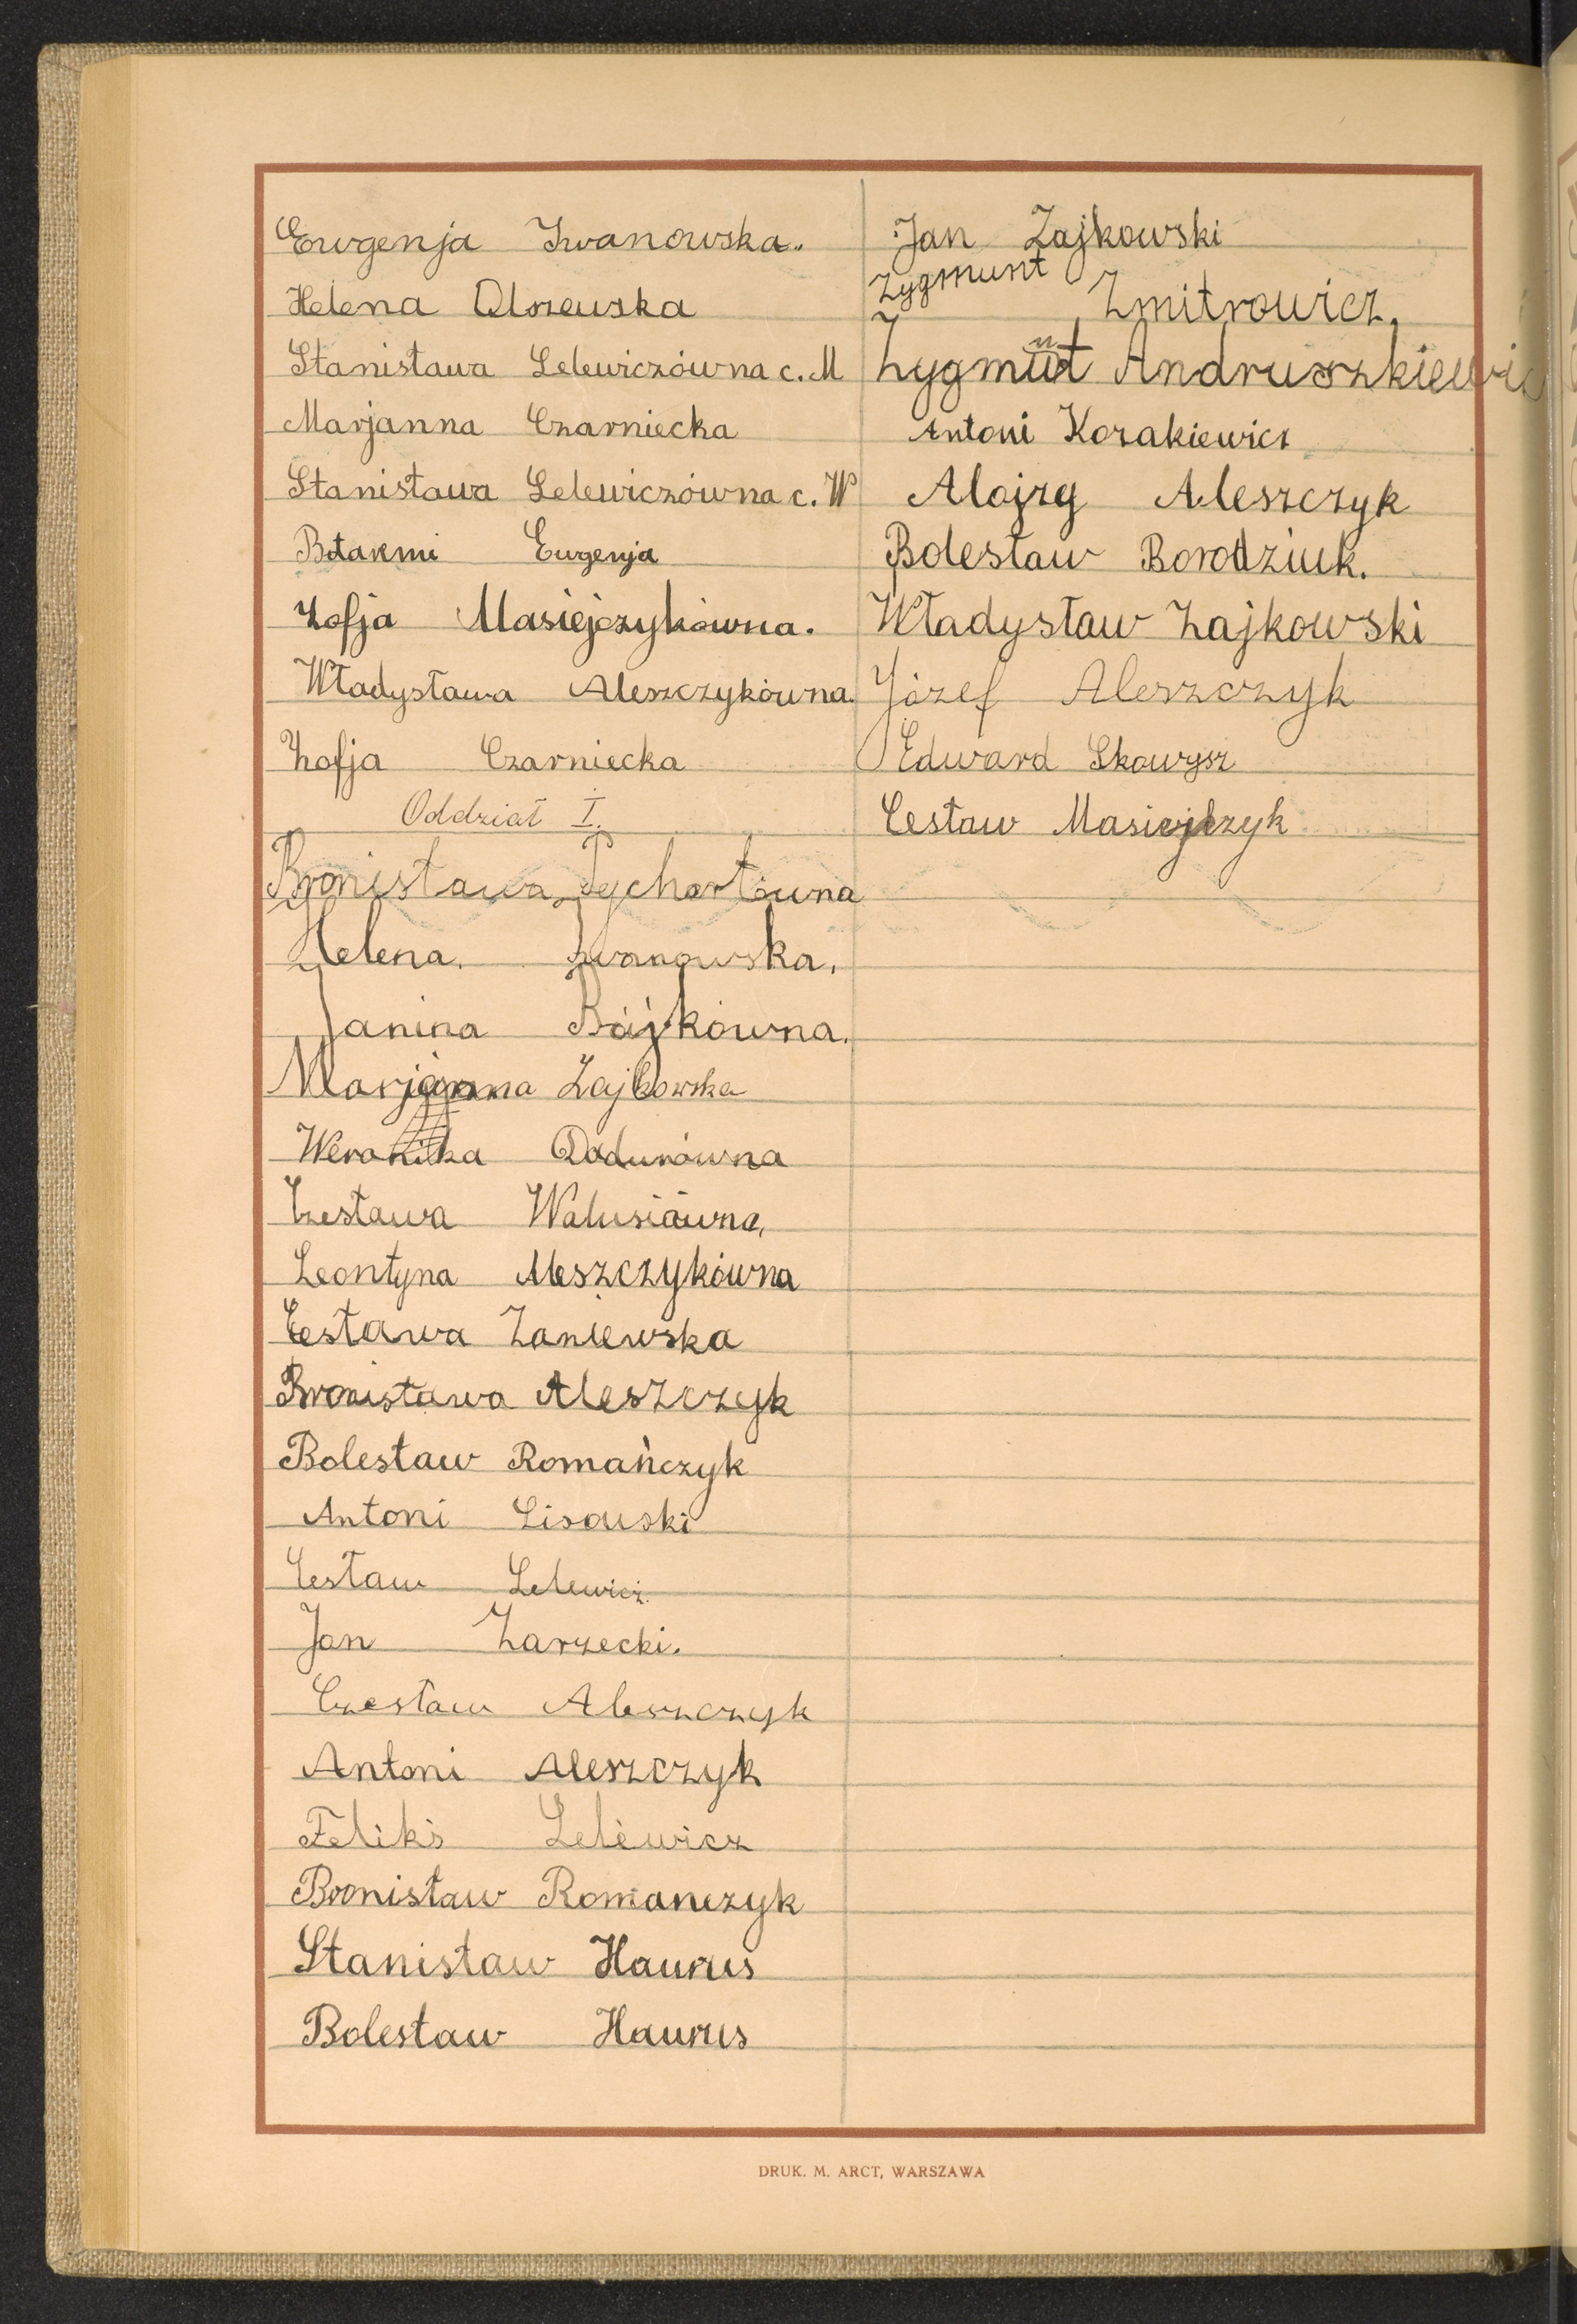 Eugenja Iwanowska.
Helena Olszewska
Stanisława Lelewiczówna c. M
Marjanna Czarniecka
Stanisława Lelewiczówna c. W
Eugenja
Zofja Masiejczykówna.
Władysława Aleszczykówna.
Zofja Czarniecka
Oddział I.
Bronisława Pychartówna
Helena. Iwanowska.
Janina Bójkówna.
Marjanna Zajkowska
Weronika Dadunówna
Czesława Walusiówna,
Leontyna Aleszczykówna
Cesława Zaniewska
Bronisława Aleszczyk
Bolesław Romańczyk
Antoni Lisowski
Cesław Lelewicz.
Jan Zarzecki.
Czesław Aleszczyk
Antoni Aleszczyk
Feliks Lelewicz
Bronisław Romanczyk
Stanisław Haurus
Bolesław Haurus
Jan Zajkowski
Zygmunt Zmitrowicz.
Zygmunt Andruszkiewic
Antoni Kozakiewicz
Alojzy Aleszczyk
Bolesław Borodziuk.
Władysław Zajkowski
Józef Aleszczyk
Edward Skowysz
Cesław Masiejczyk
DRUK. M. ARCT, WARSZAWA